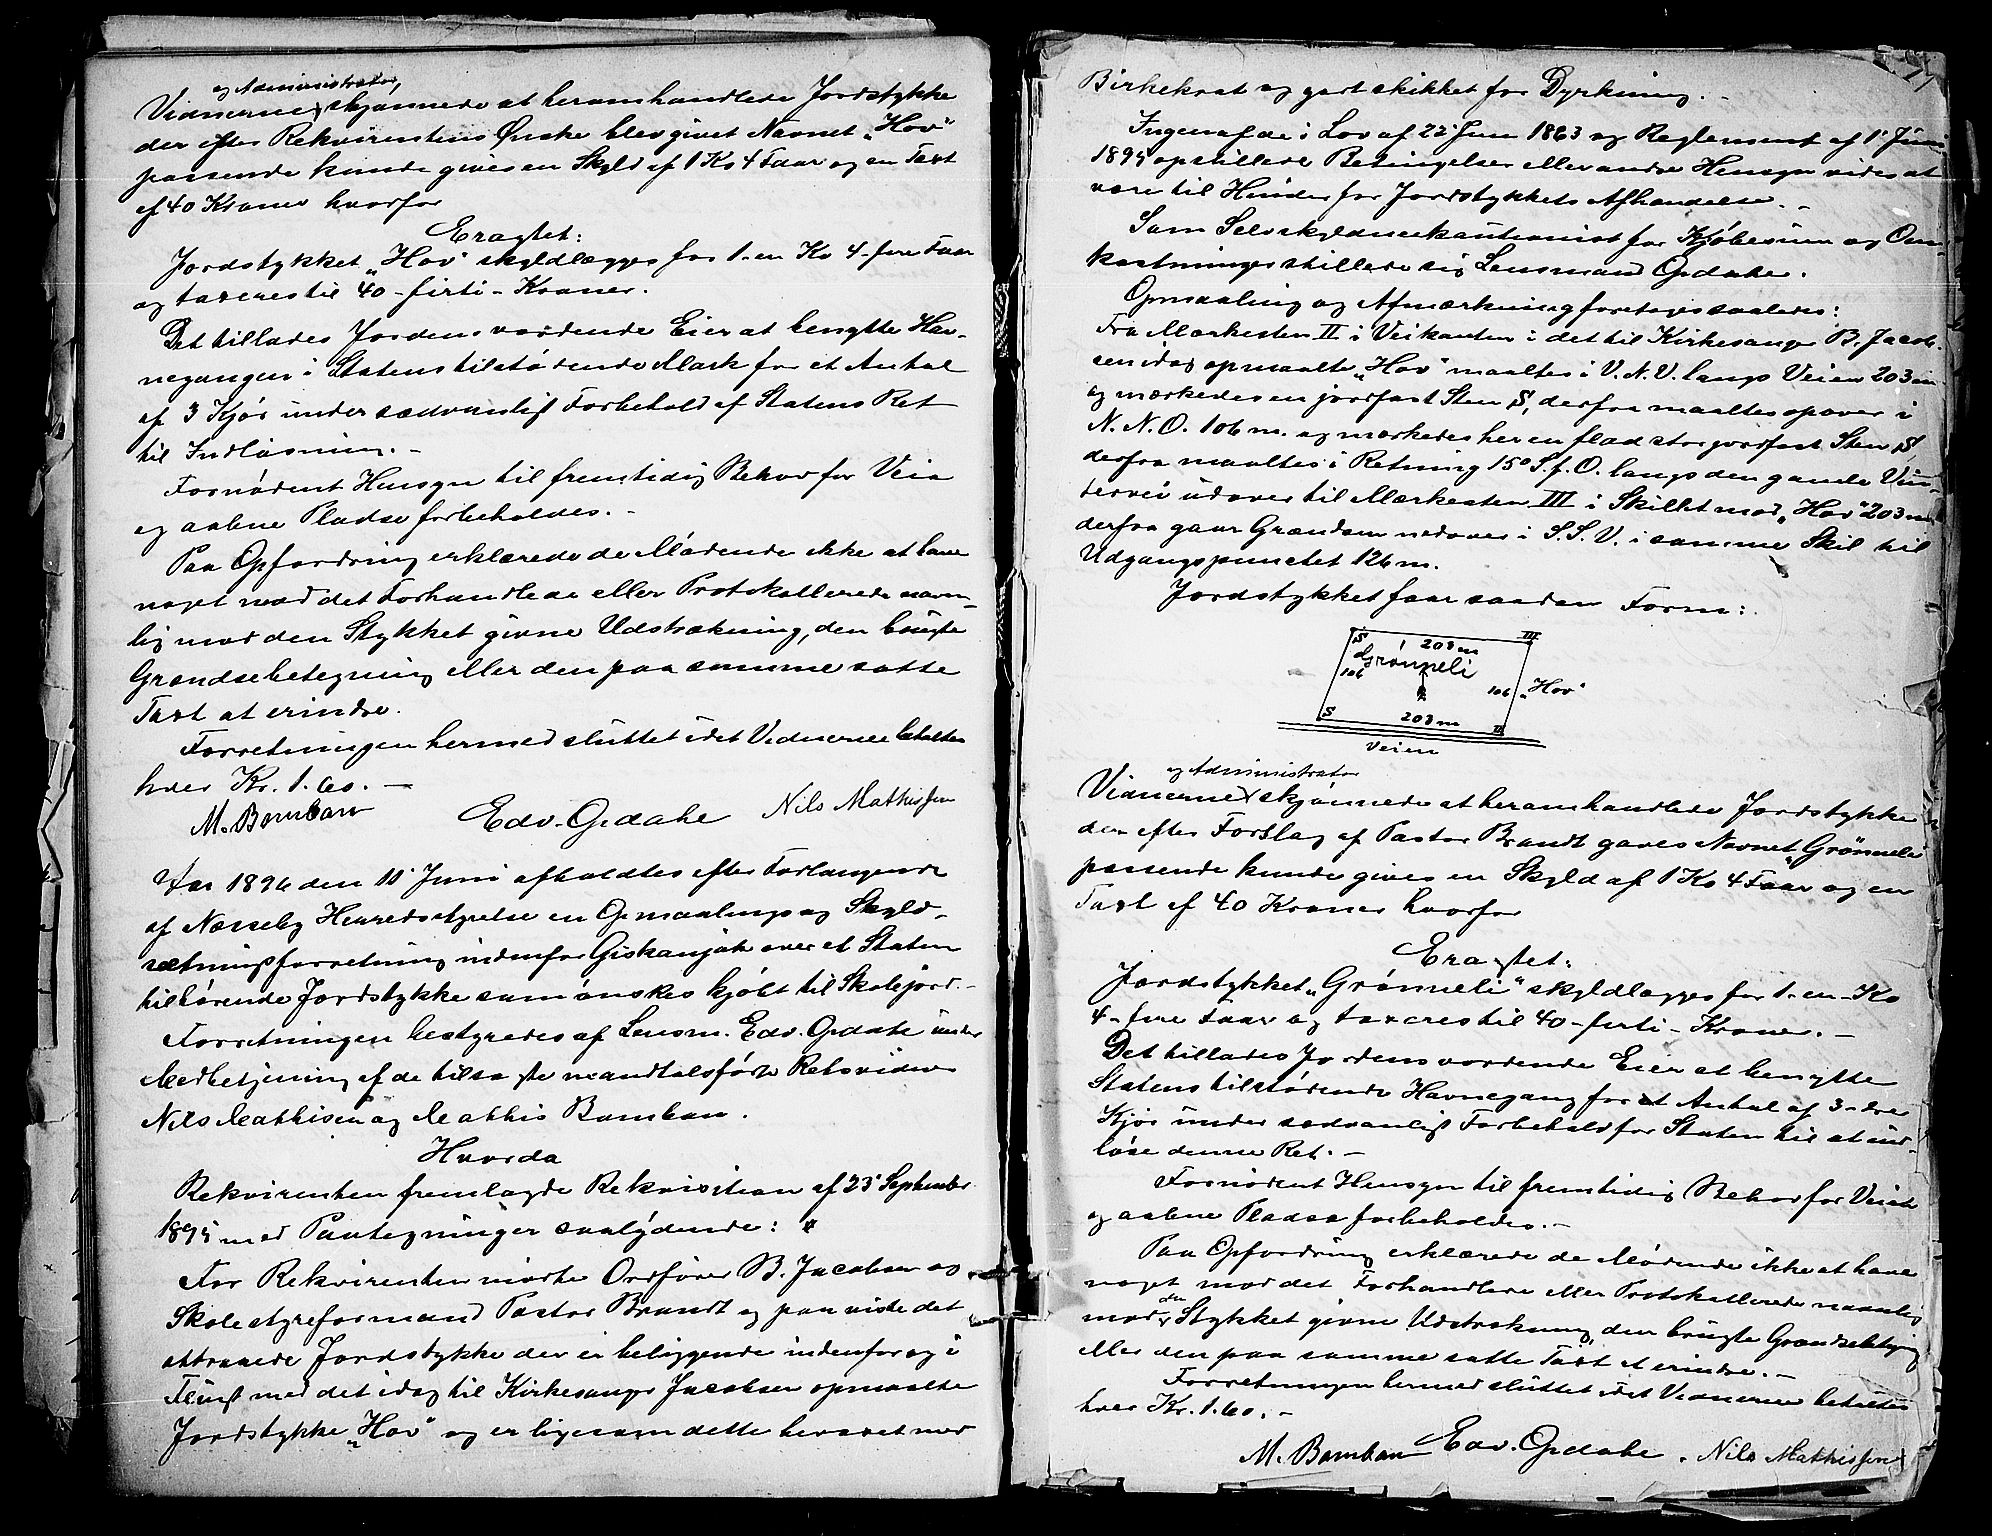 og Administrator,
Vidnerne skjønnede at heromhandlede Jordstykke
der efter Rekvirentens Ønske blev givet Navnet „Hov“
passende kunde gives en Skyld af 1 Ko 4 Faar og en Taxt
af 40 Kroner hvorfor
Eragtet:
Jordstykket „Hov“ skyldlægges for 1-en Ko 4-fire Faar
og taxeres til 40-firti-Kroner.
Det tillades Jordens vordende Eier at benytte Hav-
negangen i Statens tilstødende Mark for et Antal
af 3 Kjør under sædvanligt Forbehold af Statens Ret
til Indløsning.-
Fornødent Hensyn til fremtidig Behov for Veie
og aabne Pladse forbeholdes.-
Paa Opfordring erklærede de Mødende ikke at have
noget mod det Forhandlede eller Protokollerede navn-
lig mod den Stykket givne Udstrækning, den brugte
Grændsebetegning eller den paa samme satte
Taxt at erindre.
Forretningen hermed sluttet idet Vidnerne betaltes
hver Kr. 1.60.-
M. Bomban Edv. Opdahl Nils Mathissen
Aar 1896 den 11' Juni afholdtes efter Forlangende
af Nesseby Herredsstyrelse en Opmaalings og Skyld-
sætningsforretning indenfor Giskanjok over et Staten
tilhørende Jordstykke som ønskes kjøbt til Skolejord.-
Forretningen bestyredes af Lensm. Edv. Opdahl under
Medbetjening af de tilsagte mandtalsførte Retsvidner
Nils Mathisen og Mathis Bomban.
Hvorda
Rekvirenten fremlagde Rekvisition af 23' September
1895 med Paategninger saalydende:
For Rekvirenten mødte Ordfører B. Jacobsen og
Skolestyreformand Pastor Brandt og paaviste det
attraaede Jordstykke der er beliggende indenfor og i
Flugt med det idag til Kirkesanger Jacobsen opmaalte
Jordstykke „Hov“ og er ligesom dette bevoxet med
Birkekrat og godt skikket for Dyrkning.-
Ingen af de i Lov af 22' Juni 1863 og Reglement af 1' Juni
1895 opstillede Betingelser eller andre Hensyn vides at
være til Hinder for Jordstykkets Afhændelse.-
Som Selvskyldnerkautionist for Kjøbesum og Om-
kostninger stillede sig Lensmand Opdahl.
Opmaaling og Afmærkning foretoges saaledes:
Fra Mærkesten II i Veikanten i det til Kirkesanger B. Jacob-
sen idag opmaalte „Hov“ maaltes i V.N.V. langs Veien 203 m
og mærkedes en jordfast Sten S, derfra maaltes opover i
N.N.O. 106 m. og mærkedes her en flad stor jordfast Sten S,
derfra maaltes i Retning 15° S.f.O. langs den gamle Vin-
tervei udover til Mærkesten III i Skillet mod „Hov“ 203 m
derfra gaar Grændsen nedover i S.S.V. i samme Skil til
Udgangspunctet 126 m.
Jordstykket faar saadan Form:
S 203 m III
Grønneli
106 106 „Hov“
S 203 m II
Veien
og Administrator
Vidnerne skjønnede at heromhandlede Jordstykke
der efter Forslag af Pastor Brandt gaves Navnet „Grønneli“
passende kunde gives en Skyld af 1 Ko 4 Faar og en
Taxt af 40 Kroner hvorfor
Eragtet:
Jordstykket „Grønneli“ skyldlægges for 1-en-Ko
4-fire Faar og taxeres til 40-firti-Kroner.-
Det tillades Jordens vordende Eier at benytte
Statens tilstødende Havnegang for et Antal af 3-tre
Kjør under sædvanligt Forbehold for Staten til at ind-
løse denne Ret.-
Fornødent Hensyn til fremtidig Behov for Veie
og aabne Pladse forbeholdes.-
Paa Opfordring erklærede de Mødende ikke at have
noget mod det Forhandlede eller Protokollerede navnlig
mod den Stykket givne Udstrækning, den brugte Grændsebetegning
eller den paa samme satte Taxt at erindre.-
Forretningen hermed sluttet idet Vidnerne betaltes
hver Kr. 1.60.-
M. Bomban Edv. Opdahl. Nils Mathissen